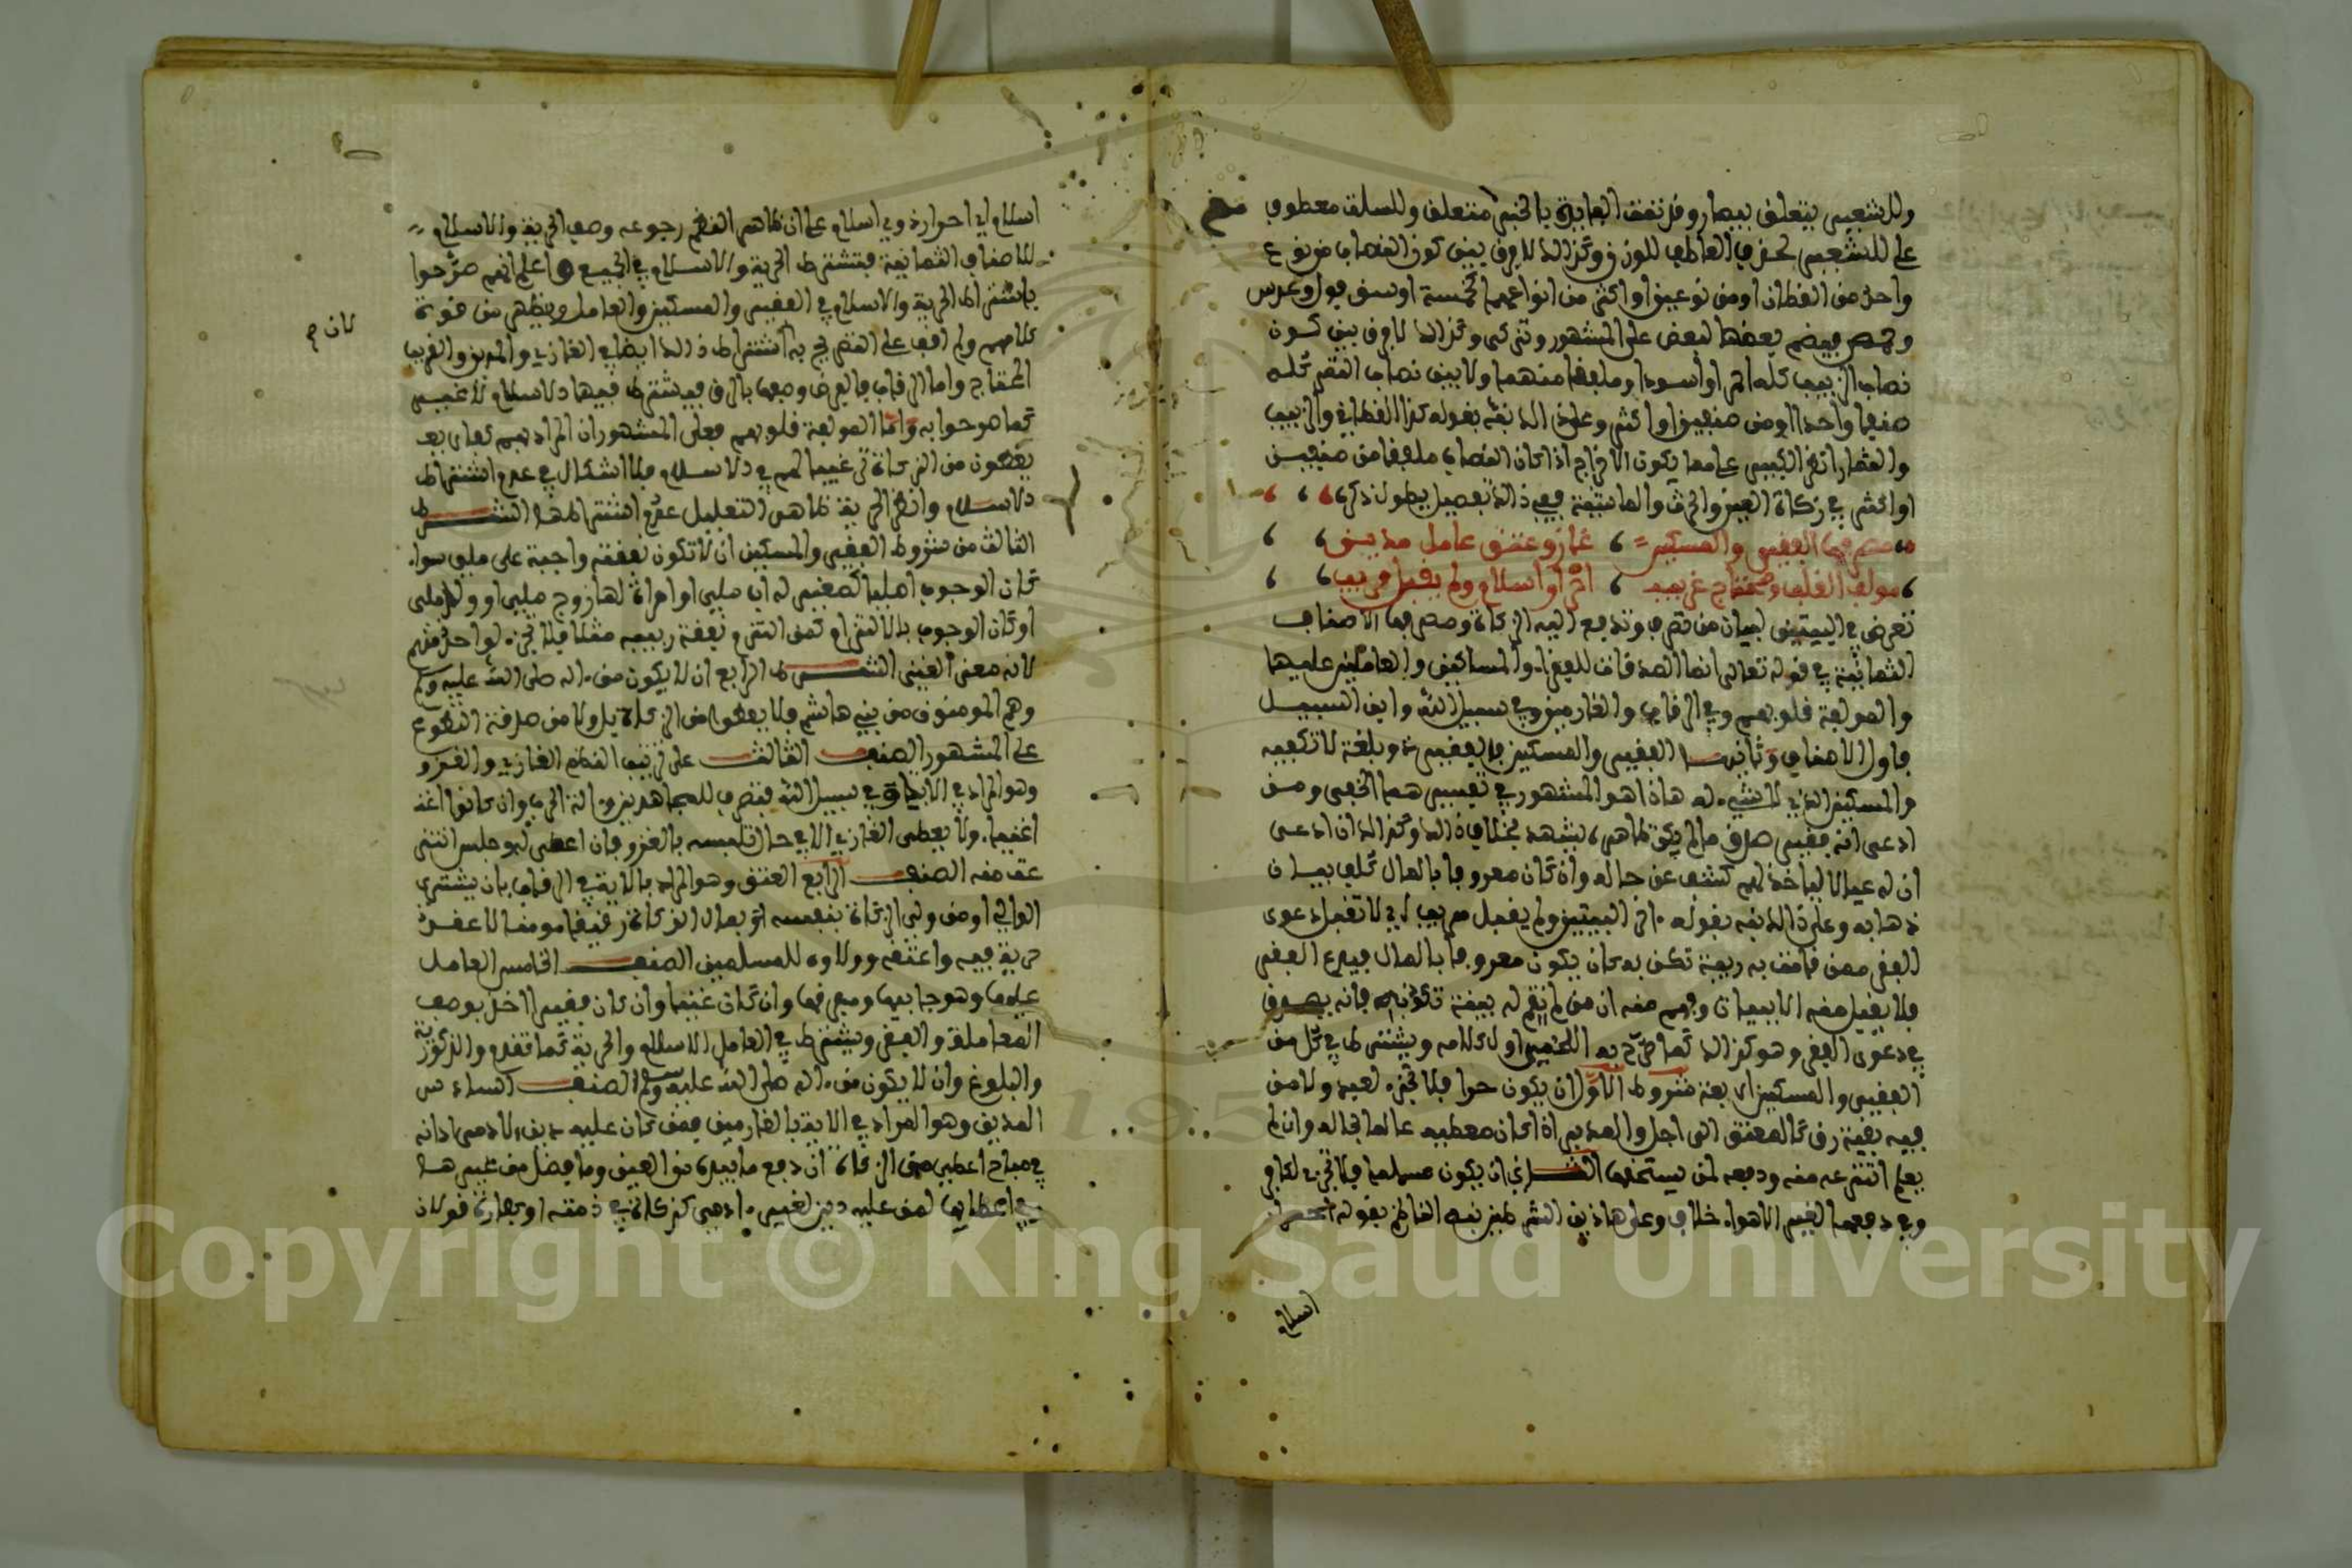 وللشعير يتعلق بيصار وقد تقف الفائدة بالخبر متعلق وللسلت معطوف
على للشعير بحذف العاطف للوزن وكذا لا فرق بين كون النصاب من نوع
واحد من القطاني او من نوعين او اكثر من انواعها كخمسة اوسق فول وعدس
وحمص فيضم بعضها لبعض على المشهور وتزكى وكذا لا فرق بين كون
نصاب الزبيب كله احمر او أسود او ملفقا منهما ولا بين نصاب التمر كله
صنفا واحدا او من صنفين او اكثر وعلى ذلك نبه بقوله كذا القطاني والزبيب
والثمار انظر الكبير على ما يكون الاخراج اذا كان النصاب ملفقا من صنفين
او اكثر في زكاة العين والحرث والماشية ففي ذلك تفصيل يطول ذكره
مصرفها الفقير والمسكين غاز وعتق عامل مدين
مولف القلب ومحتاج غريب احرار اسلام ولم يقبل مريب
تعرض في البيتين لبيان من تصرف وتدفع اليه الزكاة ومصرفها الاصناف
الثمانية في قوله تعالى انما الصدقات للفقراء والمساكين والعاملين عليها
والمولفة قلوبهم وفي الرقاب والغارمين وفي سبيل الله وابن السبيل
فاول الاصناف وثانيها الفقير والمسكين فالفقير ذو بلغة لا تكفيه
والمسكين الذي لا شيء له هاذا هو المشهور في تفسيرهما اللخمي ومن
ادعى انه فقير صدق ما لم يكن ظاهره يشهد بخلاف ذلك وكذلك ان ادعى
ان له عيالا لياخذ لهم كشف عن حاله وان كان معروفا بالمال كلف ببيان
ذهابه وعلى ذلك نبه بقوله ءاخر البيتين ولم يقبل مريب اي لا تقبل دعوى
الفقر ممن قامت به ريبة تكذبه كان يكون معروفا بالمال فيدعي الفقر
فلا يقبل منه الا ببيان وفهم منه ان من لم تقم له ريبة تكذبه فانه يصدق
في دعوى الفقر وهو كذلك كما صرح به اللخمي اول كلامه ويشترط في كل من
الفقير والمسكين اربعة شروط الاول ان يكون حرا فلا تجزء لعبد ولا من
فيه بقية رق كالمعتق الى اجل والمدبر اذا كان معطيه عالما بحاله وان لم
يعلم انتزعه منه ودفعه لمن يستحقها الثاني ان يكون مسلما فلا تجزء لكافر
وفي دفعها لغير الاهواء خلاف وعلى هاذين الشرطين نبه الناظم بقوله احرار
اسلام
اسلام اي احرار ذوي اسلام على ان ظاهر النظم رجوعه وصف الحرية والاسلام
للاصناف الثمانية فتشترط الحرية والاسلام في الجميع واعلم انهم صرحوا
باشتراط الحرية والاسلام في الفقير والمسكين والعامل ويظهر من قوة
كلامهم ولم اقف على التصريح به اشتراط ذلك ايضا في الغازي والمدين والغريب
المحتاج واما الرقاب فالغرض وصفها بالرق فيشترط فيها الاسلام لا غير
كما صرحوا به واما المولفة قلوبهم فعلى المشهور ان المراد بهم كفار
يعطون من الزكاة ترغيبا لهم في الاسلام فلا اشكال في عدم اشتراط
الاسلام وانظر الحرية ظاهر التعليل عدم اشتراطها الشرط
الثالث من شروط الفقير والمسكين ان لا تكون نفقته واجبة على ملي سواء
كان الوجوب اصليا كصغير له اب ملي او امراة لها زوج ملي او ولد ملي
او كان الوجوب بالالتزام كمن التزم نفقة ربيبه مثلا فلا تجزء لواحد منهم
لانه معنى الغني الشرط الرابع ان لا يكون من ءاله صلى الله عليه وسلم
وهم المومنون من بني هاشم فلا يعطون من الزكاة بل ولا من صدقة التطوع
على المشهور الصنف الثالث على ترتيب الناظم الغازي والغزو
وهو المراد في الاية وفي سبيل الله فتصرف للمجاهدين وءالة الحرب وان كانوا
اغنياء ولا يعطى الغازي الا في حال تلبسه بالغزو فان اعطي له وجلس انتزعت
منه الصنف الرابع العتق وهو المراد بالاية وفي الرقاب بان يشتري
الوالي او من ولي الزكاة بنفسه بمال الزكاة رقيقا مومنا لا عقد
حرية فيه واعتقه وولاوه للمسلمين الصنف الخامس العامل
عليها وهو جابيها ومفرقها وان كان غنيا وان كان فقيرا اخذ بوصف
المعاملة والفقر ويشترط في العامل الاسلام والحرية كما تقدم والذكورية
والبلوغ وان لا يكون من ءاله صلى الله عليه وسلم الصنف السادس
المدين وهو المراد في الاية بالغارمين فمن كان عليه دين لادمي ادانه
في مباح اعطي من الزكاة ان دفع ما بيده من العين وما يفضل من غيرها
وفي اعطائها لمن عليه دين لغير ءادمي كزكاة في ذمته او كفارة قولان
كان م